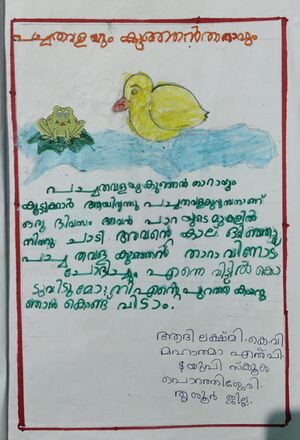 പച്ചതവളയും കുഞ്ഞൻതാറാവും
പച്ചതവളയുകുഞ്ഞൻ താറാവും
കൂട്ടുകാർ ആയിരുന്നു പാച്ചനവളകുറുമ്പനാണ്
ഒരു ദിവസം അവൻ പാറ യുടെ മുകളിൽ
നിന്നു ചാടി അവന്റെ കാല് ഒടിഞ്ഞു
പച്ച തവള കുഞ്ഞൻ താറാവിനോട്
ചോദിച്ചും എന്നെ വീട്ടിൽ കൊ
ടുവിടുമോ നീ എന്റെ പുറത്ത് കയറു
ഞാൻ കൊണ്ട് വിടാം.
ആദി ലക്ഷ്മി. കെ.വി
മഹാത്മാ എൽപി
&യുപി സ്കൂൾ
പൊറത്തിശ്ശേരി.
തൃശൂർ ജില്ല.